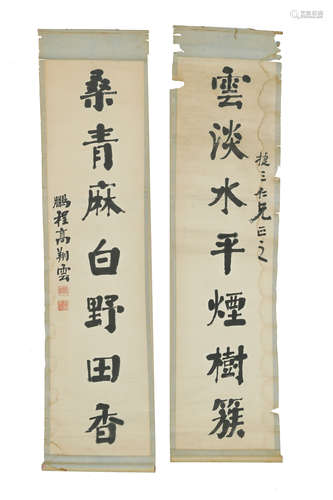 雲淡水平煙樹簇
捷三仁兄正之
桑青麻白野田香
鵬程高翔雲